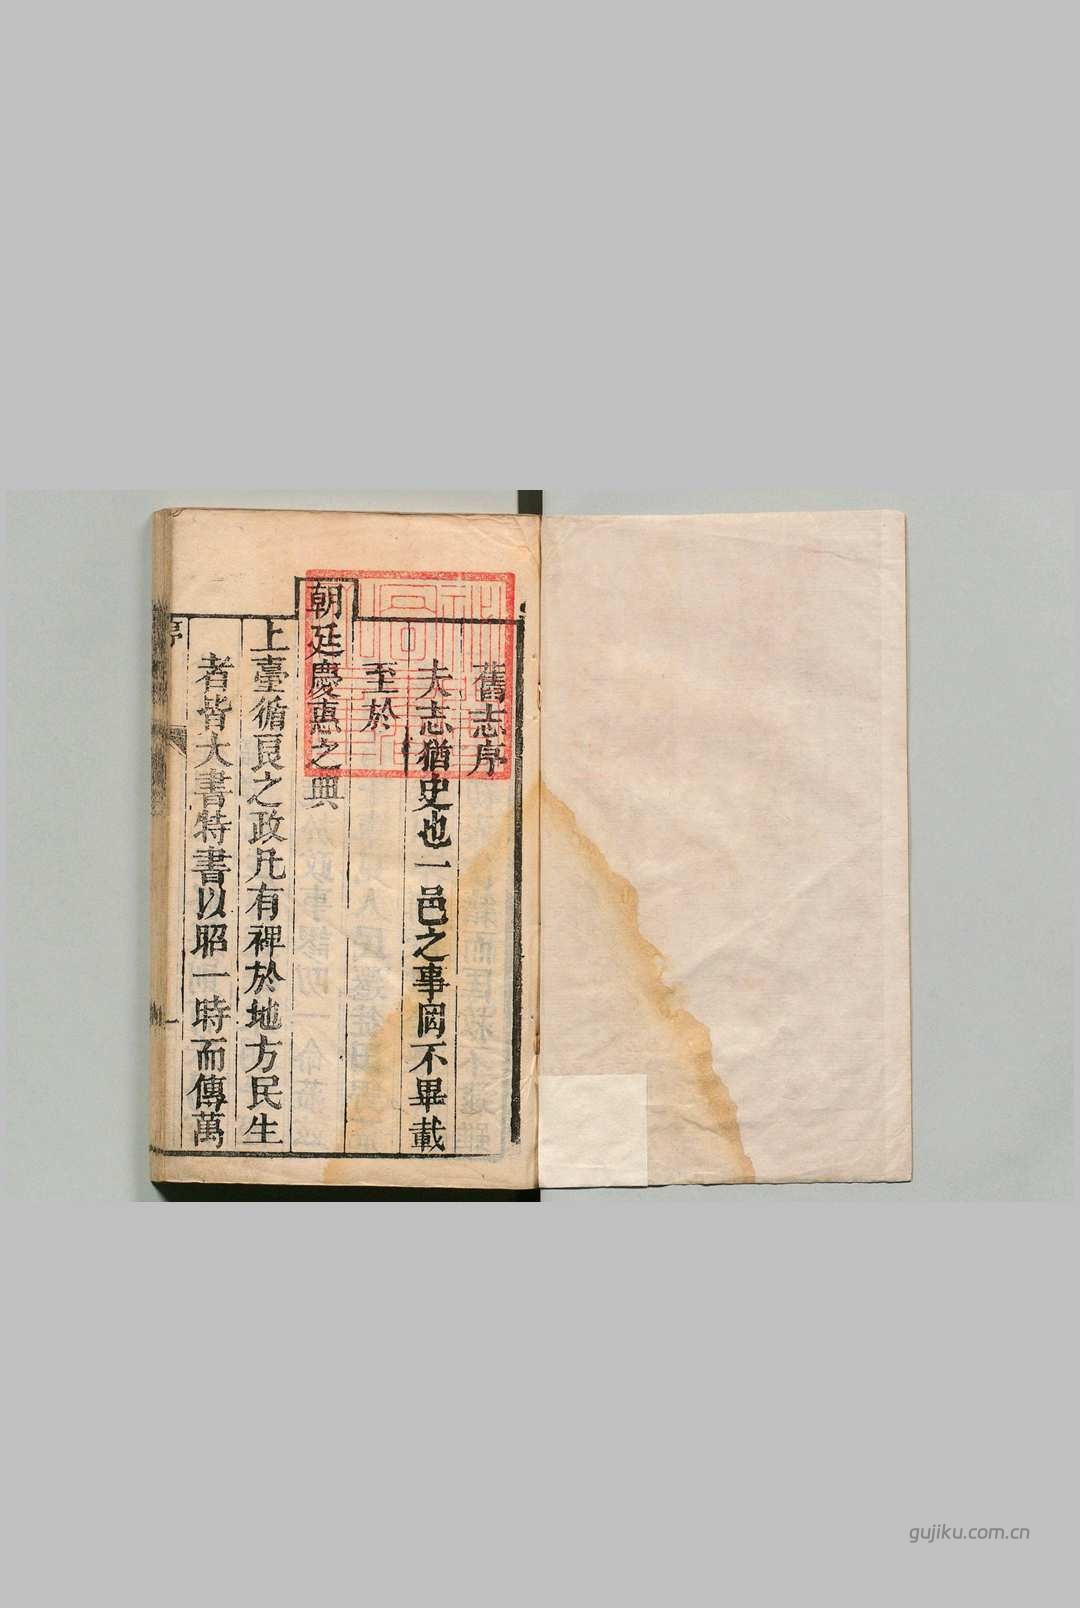 舊志序
夫志猶史也一邑之事罔不畢載
至於
朝廷慶惠之典
上臺循良之政凡有裨於地方民生
者皆大書特書以昭一時而傳萬
序
一
gujiku.com.cn